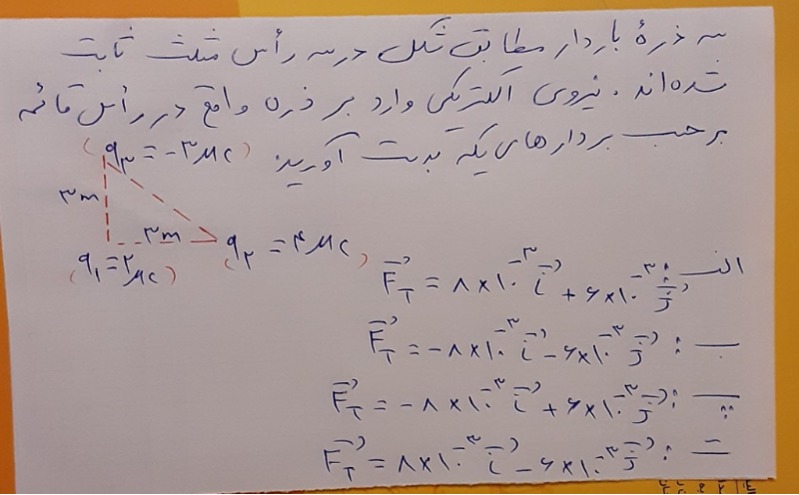 سه ذرهٔ باردار مطابق شکل در سه رأس مثلث ثابت
شده‌اند. نیروی الکتریکی وارد بر ذره واقع در رأس قائمه
برحسب بردارهای یکه بدست آورید
(q₃ = -۳μc)
۳m
۳m
(q₁ = ۲μc)
(q₂ = ۴μc)
الف: F⃗_T = ۸×۱۰⁻³ i⃗ + ۶×۱۰⁻³ j⃗
ب: F⃗_T = -۸×۱۰⁻³ i⃗ - ۶×۱۰⁻³ j⃗
پ: F⃗_T = -۸×۱۰⁻³ i⃗ + ۶×۱۰⁻³ j⃗
ت: F⃗_T = ۸×۱۰⁻³ i⃗ - ۶×۱۰⁻³ j⃗